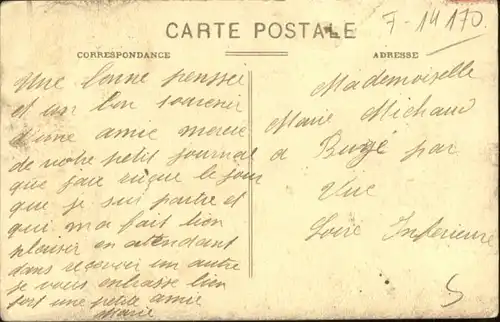 CARTE POSTALE
F-14170
CORRESPONDANCE
ADRESSE
Une bonne pensser
et un bon souvenir
d'une amie mercie
de votre petit journal
que jaie reçue le jour
que je suis partre et
qui ma fait bien
plaisir en attendant
dans recevoir un autre
je vous enbrasse bien
fort une petite amie
Marie
Mademoiselle
Marie Michaud
a par
Vue
Loire Inferieure